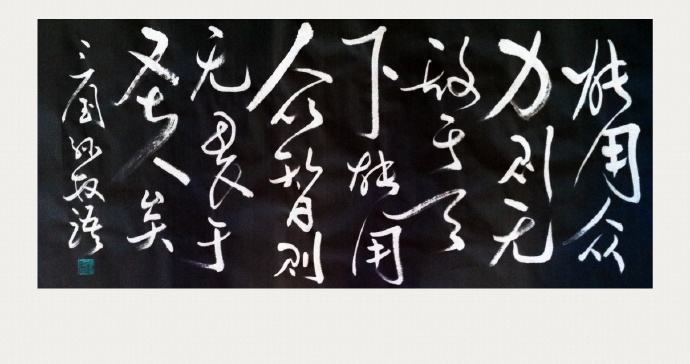 能用众
力则无
敌于天
下能用
众智则
无畏于
圣人矣
三国孙权语